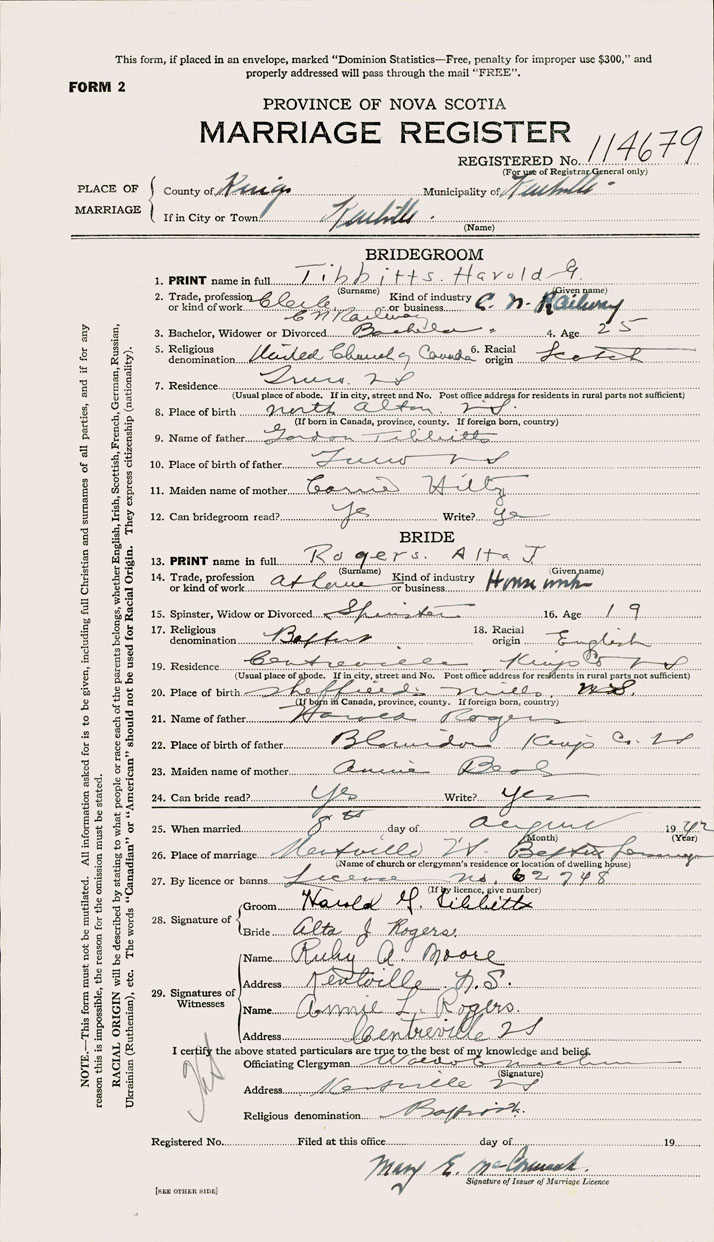 This form, if placed in an envelope, marked "Dominion Statistics—Free, penalty for improper use $300," and
properly addressed will pass through the mail "FREE".
FORM 2
PROVINCE OF NOVA SCOTIA
MARRIAGE REGISTER
REGISTERED No. 114679
(For use of Registrar General only)
PLACE OF MARRIAGE
County of Kings Municipality of Kentville
If in City or Town Kentville
(Name)
BRIDEGROOM
1. PRINT name in full Tibbitts. Harold G.
(Surname) (Given name)
2. Trade, profession or kind of work Clerk C N Railway Kind of industry or business C. N. Railway
3. Bachelor, Widower or Divorced Bachelor 4. Age 25
5. Religious denomination United Church of Canada 6. Racial origin Scotch
7. Residence Truro. N S
(Usual place of abode. If in city, street and No. Post office address for residents in rural parts not sufficient)
8. Place of birth North Alton N.S.
(If born in Canada, province, county. If foreign born, country)
9. Name of father Gordon Tibbitts
10. Place of birth of father Truro N S
11. Maiden name of mother Carrie Hiltz
12. Can bridegroom read? Yes Write? Yes
BRIDE
13. PRINT name in full Rogers. Alta J
(Surname) (Given name)
14. Trade, profession or kind of work at home Kind of industry or business Housework
15. Spinster, Widow or Divorced Spinster 16. Age 19
17. Religious denomination Baptist 18. Racial origin English
19. Residence Centreville Kings Co N S
(Usual place of abode. If in city, street and No. Post office address for residents in rural parts not sufficient)
20. Place of birth Sheffields Mills N.S.
(If born in Canada, province, county. If foreign born, country)
21. Name of father Harold Rogers
22. Place of birth of father Blomidon Kings Co. N S
23. Maiden name of mother Annie
24. Can bride read? Yes Write? Yes
25. When married 8th day of August 1942
(Month) (Year)
26. Place of marriage Kentville N S. Baptist Parsonage
(Name of church or clergyman's residence or location of dwelling house)
27. By licence or banns License No. 62748
(If by licence, give number)
28. Signature of
Groom Harold G. Tibbitts
Bride Alta J Rogers.
29. Signatures of Witnesses
Name Ruby A. Moore
Address Kentville N.S.
Name Annie L. Rogers.
Address Centreville N S
I certify the above stated particulars are true to the best of my knowledge and belief.
Officiating Clergyman
(Signature)
Address Kentville N S
Religious denomination Baptist.
Registered No. Filed at this office day of 19
Mary E. McCormack.
Signature of Issuer of Marriage Licence
[SEE OTHER SIDE]
NOTE.—This form must not be mutilated. All information asked for is to be given, including full Christian and surnames of all parties, and if for any
reason this is impossible, the reason for the omission must be stated.
RACIAL ORIGIN will be described by stating to what people or race each of the parents belongs, whether English, Irish, Scottish, French, German, Russian,
Ukrainian (Ruthenian), etc. The words "Canadian" or "American" should not be used for Racial Origin. They express citizenship (nationality).